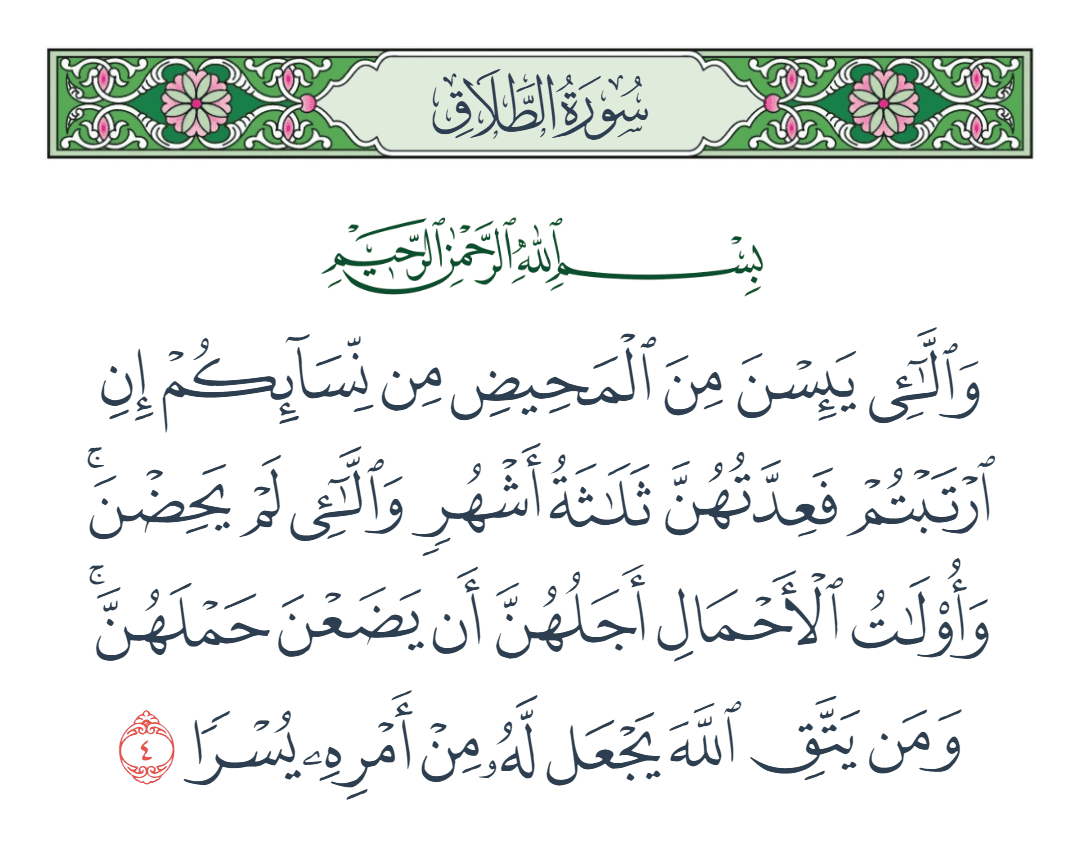 سُورَةُ الطَّلَاقِ
بِسْمِ ٱللَّهِ ٱلرَّحْمَٰنِ ٱلرَّحِيمِ
وَٱلَّٰٓـِٔي يَئِسْنَ مِنَ ٱلْمَحِيضِ مِن نِّسَآئِكُمْ إِنِ
ٱرْتَبْتُمْ فَعِدَّتُهُنَّ ثَلَٰثَةُ أَشْهُرٍ وَٱلَّٰٓـِٔي لَمْ يَحِضْنَ ۚ
وَأُو۟لَٰتُ ٱلْأَحْمَالِ أَجَلُهُنَّ أَن يَضَعْنَ حَمْلَهُنَّ ۚ
وَمَن يَتَّقِ ٱللَّهَ يَجْعَل لَّهُۥ مِنْ أَمْرِهِۦ يُسْرًا ٤